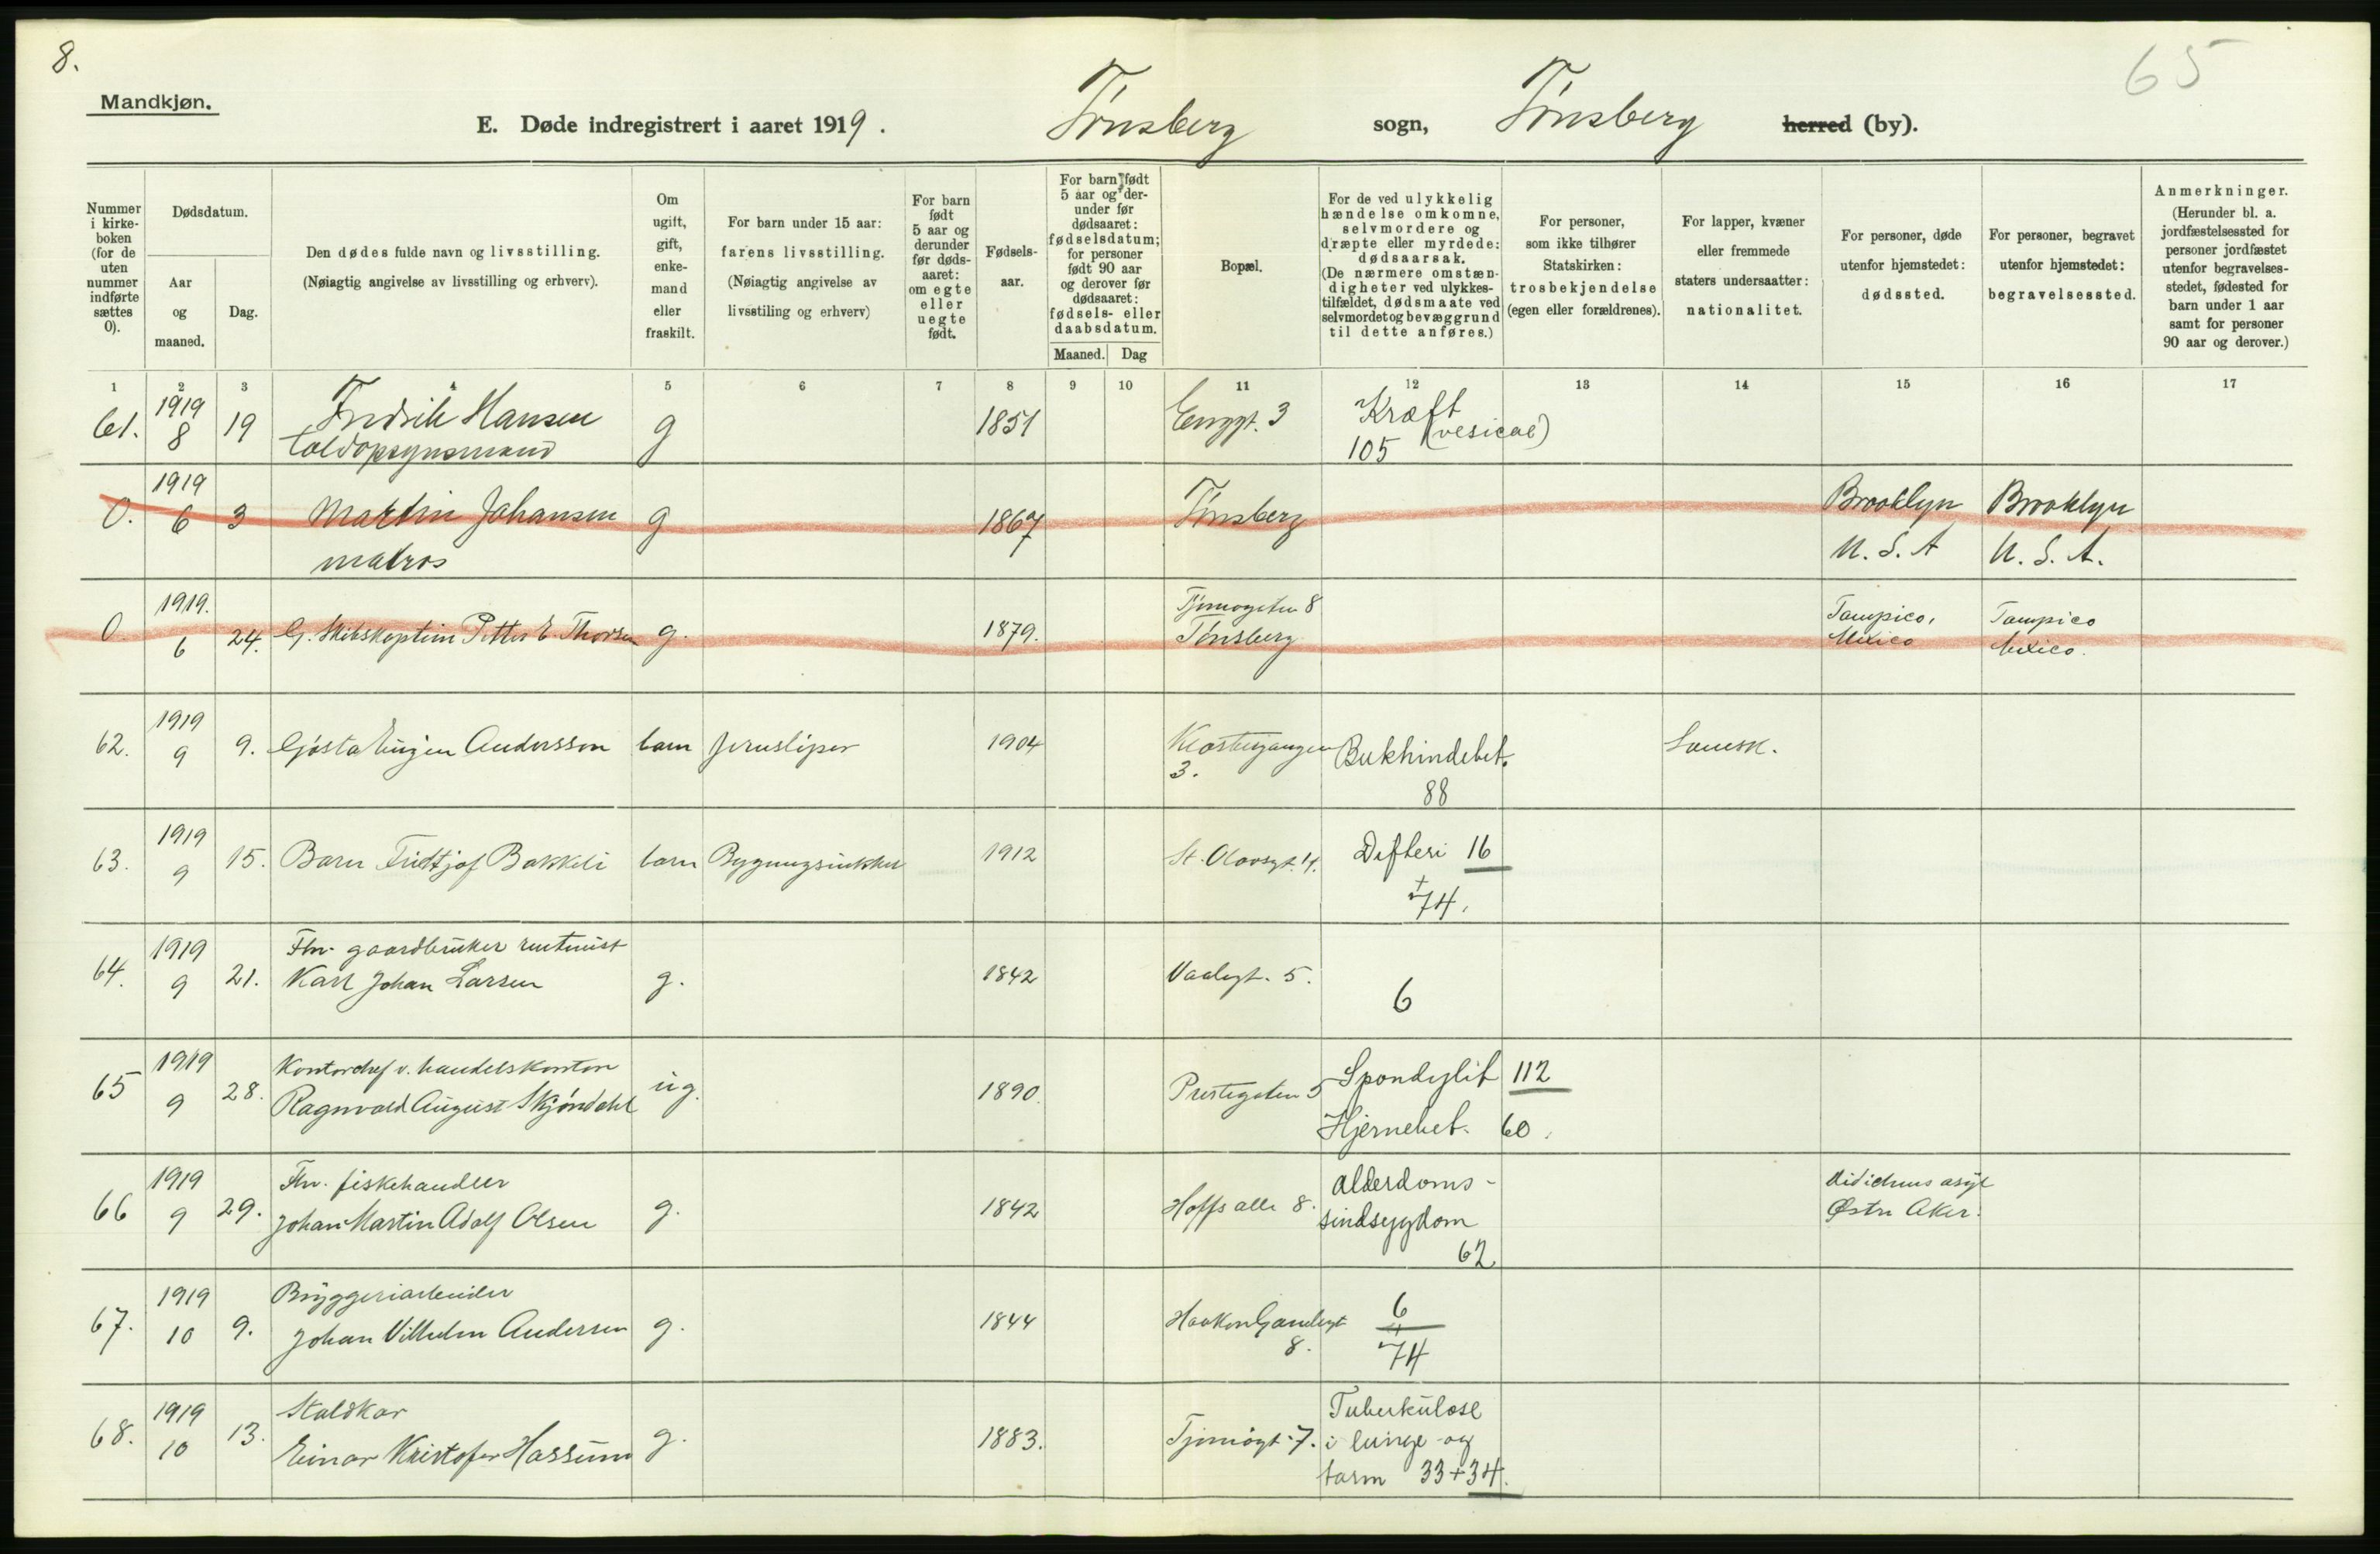 8.
65
Mandkjøn.
E. Døde indregistrert i aaret 1919. Tønsberg sogn, Tønsberg herred (by).
Nummer i kirkeboken (for de uten nummer indførte sættes 0).
Dødsdatum.
Aar og maaned.
Dag.
Den dødes fulde navn og livsstilling.
(Nøiagtig angivelse av livsstilling og erhverv).
Om ugift, gift, enkemand eller fraskilt.
For barn under 15 aar:
farens livsstilling.
(Nøiagtig angivelse av livsstiling og erhverv)
For barn født 5 aar og derunder før dødsaaret: om egte eller uegte født.
Fødselsaar.
For barn født 5 aar og derunder før dødsaaret: fødselsdatum; for personer født 90 aar og derover før dødsaaret: fødsels- eller daabsdatum.
Maaned. Dag
Bopæl.
For de ved ulykkelig hændelse omkomne, selvmordere og dræpte eller myrdede: dødsaarsak.
(De nærmere omstændigheter ved ulykkestilfældet, dødsmaate ved selvmordet og bevæggrund til dette anføres.)
For personer, som ikke tilhører Statskirken: trosbekjendelse (egen eller forældrenes).
For lapper, kvæner eller fremmede staters undersaatter: nationalitet.
For personer, døde utenfor hjemstedet: dødssted.
For personer, begravet utenfor hjemstedet: begravelsessted.
Anmerkninger.
(Herunder bl. a. jordfæstelsessted for personer jordfæstet utenfor begravelsesstedet, fødested for barn under 1 aar samt for personer 90 aar og derover.)
1 2 3 4 5 6 7 8 9 10 11 12 13 14 15 16 17
61. 1919 8 19 Fredrik Hansen g 1851 Enggt. 3 Kræft (vesicae)
Toldopsynsmand 105
0. 1919 6 3 Martin Johansen g 1867 Tønsberg Brooklyn Brooklyn
matros U. S. A U. S. A.
0 1919. 6 24. G. Skibskaptein Petter E. Thorsen g. 1879. Tjømøgaten 8 Tampico, Tampico
Tønsberg Mexico Mexico.
62. 1919 9 9. Gøsta Eugen Andersson barn jernsliper 1904 Klostergangen 3. Bukhindebet. Svensk.
88
63. 1919 9 15. Barn Fridtjof Bakkeli barn Bygningssnekker 1912 St. Olavsgt. 4. Difteri 16
+ 74.
64. 1919 9 21. Fhv. gaardbruker rentenist
Karl Johan Larsen g. 1842 Vaalegt. 5. 6
65 1919 9 28. Kontorchef v. handelskontor
Ragnvald August Skjøndahl ug. 1890. Prestegaten 5 Spondylit 112
Hjernebet. 60.
66 1919 9 29. Fhv. fiskehandler
Johan Martin Adolf Olsen g. 1842 Hoffs alle 8. Alderdoms-
sindsygdom
62.
asyl
Østre Aker.
67. 1919 10 9. Bryggeriarbeider
Johan Vilhelm Andersen g. 1844 Haakon Gamlesgt 8. 6
+ 74
68. 1919 10 13. Staldkar
Einar Kristofer Hassum g. 1883. Tjømøgt. 7. Tuberkulose
i lunge og
tarm 33+34.